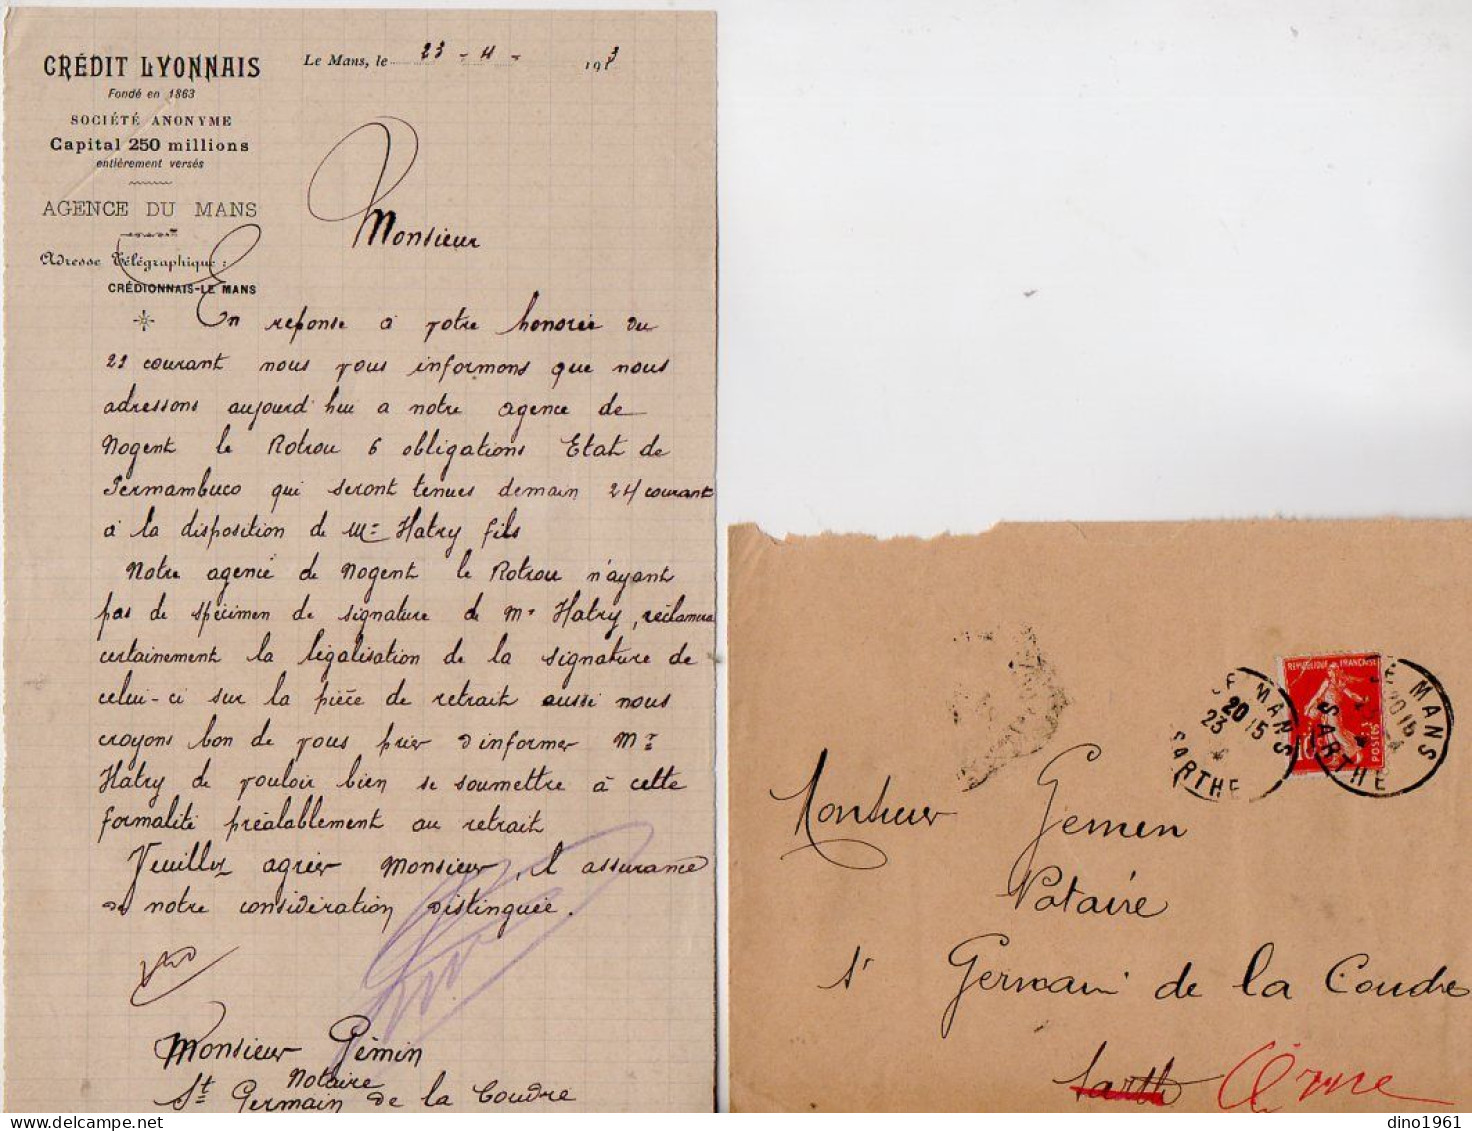 CRÉDIT LYONNAIS
Fondé en 1863
SOCIÉTÉ ANONYME
Capital 250 millions
entièrement versés
AGENCE DU MANS
Adresse Télégraphique :
CRÉDIONNAIS-LE MANS
Le Mans, le 23 - 4 - 1913
Monsieur
En reponse a votre honorée du
22 courant nous vous informons que nous
adressons aujourd'hui a notre agence de
Nogent le Rotrou 6 obligations Etat de
Permambuco qui seront tenues demain 24 courant
à la disposition de Mr Hatry fils
Notre agence de Nogent le Rotrou n'ayant
pas de spécimen de signature de Mr Hatry, réclamera
certainement la légalisation de la signature de
celui-ci sur la pièce de retrait aussi nous
croyons bon de vous prier d'informer Mr
Hatry de vouloir bien se soumettre à cette
formalité préalablement au retrait
Veuillez agréer Monsieur, l'assurance
de notre considération distinguée.
Monsieur Gémin
Notaire
St Germain de la Coudre
REPUBLIQUE FRANÇAISE
10
POSTES
LE MANS
20 15
23
SARTHE
LE MANS
20 15
SARTHE
Monsieur Gemen
Notaire
St Germain de la Coudre
Sarthe Orne
dino1961